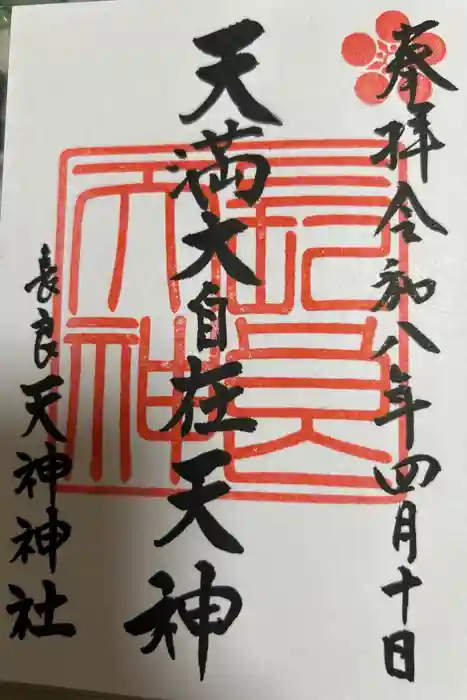 奉拝令和八年四月十日
天満大自在天神
長良天神神社
長良天神